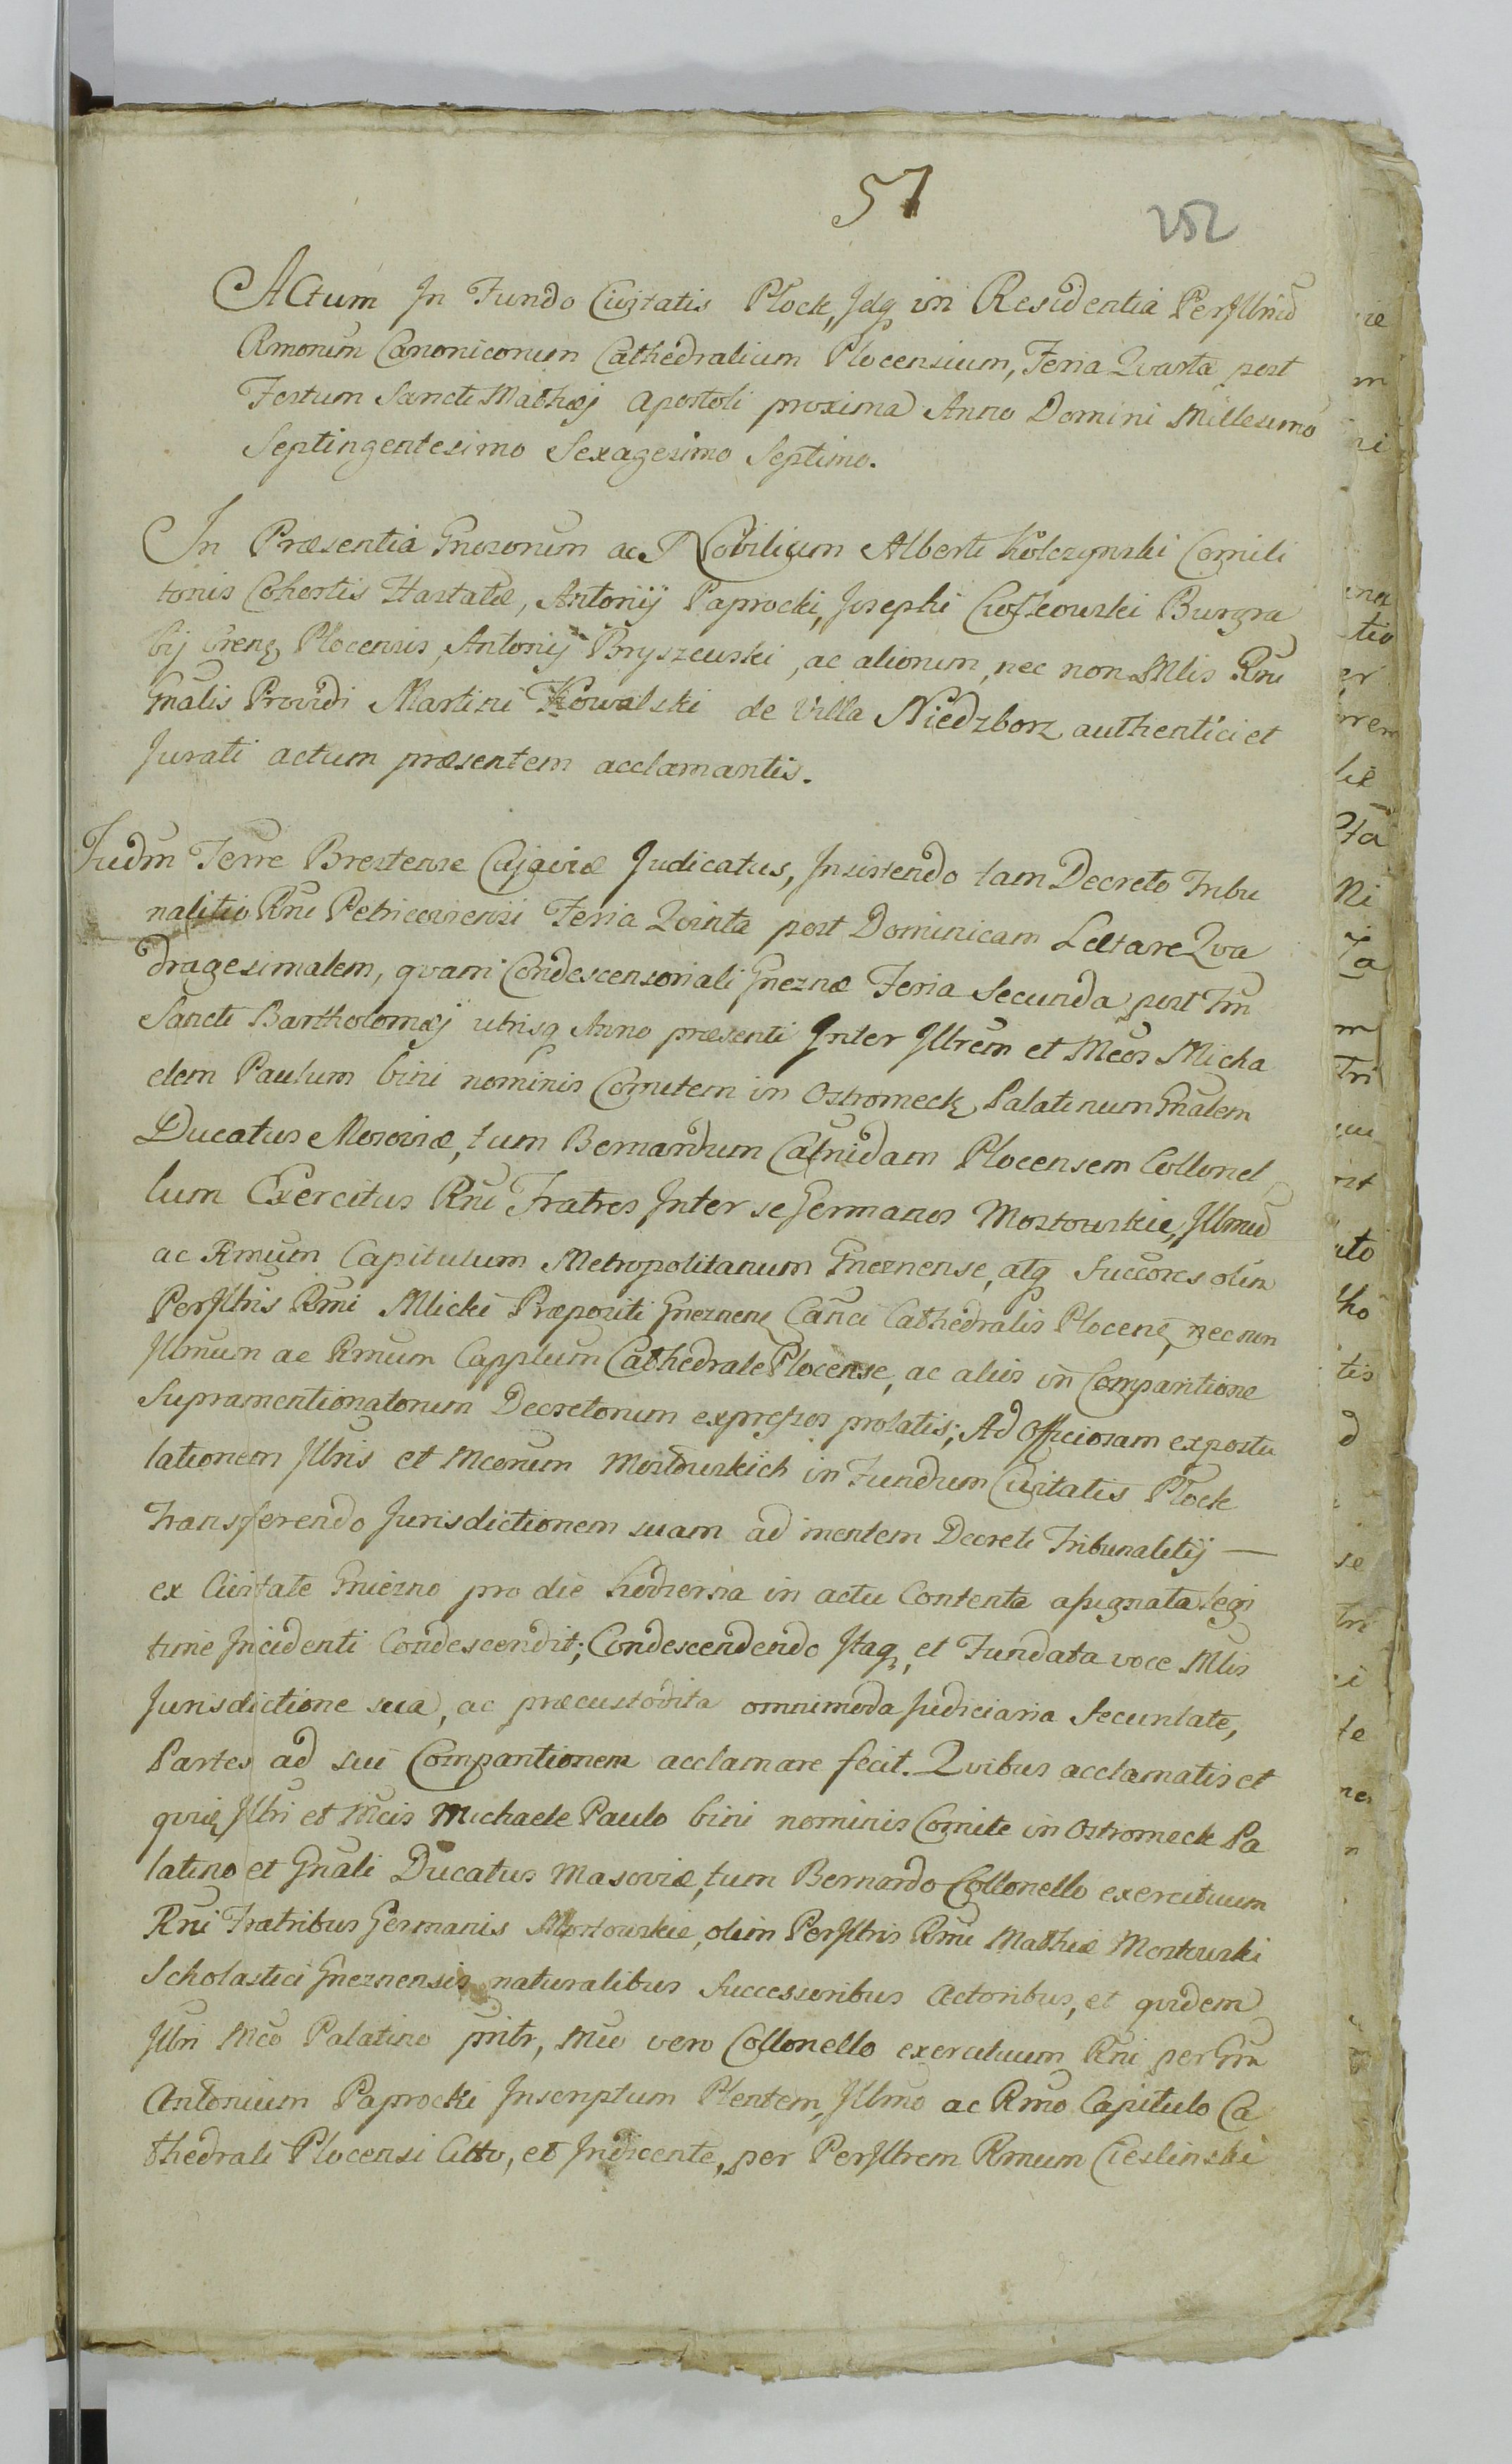 57
252
Actum In Fundo Civitatis Płock, Idq in Residentia Perillrium
Rmorum Canonicorum Cathedralium Plocensium, Feria Qvarta post
Festum Sancti Mathæj Apostoli proxima Anno Domini Millesimo
Septingentesimo Sexagesimo Septimo.
In Præsentia Gnerorum ac Nobilium Alberti Kolczynski Comili
tonis Cohortis Hastatæ, Antonij Paprocki, Josephi Burgra
bij Plocensis, Antonij Bryszewski, ac aliorum, nec non Mlis Rni
Gnalis Providi Martini Kowalski de Villa Niedzborz authentici et
Jurati actum præsentem acclamantis.
Judm Terre Brestense Cujaviæ Judicatus, Insistendo tam Decreto Tribu
nalitio Rni Petricoviensi Feria Qvinta post Dominicam Lætare Qva
dragesimalem, qvam Condescensoriali Gneznæ Feria Secunda post Fm
Sancti Bartholomæj utrisq Anno præsenti Inter Illrem et Mcos Micha
elem Paulum bini nominis Comitem in Ostromeck Palatinum Gnalem
Ducatus Mosoviæ, tum Bernardum Plocensem Collonel
lum Exercitus Rni Fratres Inter se Germanos Mostowskie, Illmum
ac Rmum Capitulum Metropolitanum Gneznense, atq Succores olim
Perillris Rmi Mlicki Præpositi Gneznens Canci Cathedralis Plocens, nec non
Illmum ac Rmum Capplum Cathedrale Plocense, ac alios in Comparitione
Supramentionatorum Decretorum expressos prolatis; Ad Officiosam expostu
lationem Illris et Mcorum Mostowskich in Fundum Civitatis Płock
Transferendo Jurisdictionem suam ad mentem Decreti Tribunalitij —
ex Civitate Gniezno pro die hodierna in actu Contenta assignata legi
time Incidenti Condescendit; Condescendendo Itaq, et Fundata voce Mlis
Jurisdictione sua, ac præcustodita omnimoda Judiciaria Securitate,
Partes ad sui Comparitionem acclamare fecit. Qvibus acclamatis et
Illri et Mcis Michaele Paulo bini nominis Comite in Ostromeck Pa
latino et Gnali Ducatus Masoviæ, tum Bernardo Collonello exercituum
Rni Fratribus Germanis Mostowskie, olim Perillris Rmi Mathiæ Mostowski
Scholastici Gneznensis naturalibus Successoribus Actoribus, et qvidem
Illri Mco Palatino pnitr, Mco vero Collonello exercituum Rni per Gm
Antonium Paprocki Inscriptum Plentem, Illmo ac Rmo Capitulo Ca
thedrali Plocensi Citto, et Indicente, per Perillrem Rmum Cieslinski